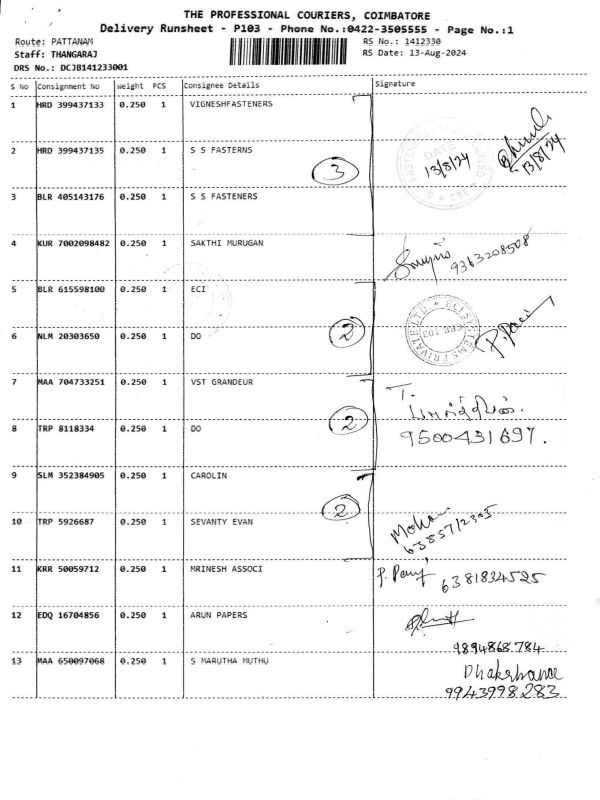 THE PROFESSIONAL COURIERS, COIMBATORE
Delivery Runsheet - P103 - Phone No.:0422-3505555 - Page No.:1
Route: PATTANAM RS No.: 1412330
Staff: THANGARAJ RS Date: 13-Aug-2024
DRS No.: DCJB141233001
S No Consignment No Weight PCS Consignee Details Signature
1 HRD 399437133 0.250 1 VIGNESHFASTENERS
DATE
13/8/24 13/8/24
2 HRD 399437135 0.250 1 S S FASTERNS
3
3 BLR 405143176 0.250 1 S S FASTENERS
4 KUR 7002098482 0.250 1 SAKTHI MURUGAN
9363208508
5 BLR 615598100 0.250 1 ECI
ECI SYSTEMS PRIVATE LTD.
6 NLM 20303650 0.250 1 DO
2 P. Pari
7 MAA 704733251 0.250 1 VST GRANDEUR
T.
8 TRP 8118334 0.250 1 DO
2 9500431697.
9 SLM 352384905 0.250 1 CAROLIN
2
10 TRP 5926687 0.250 1 SEVANTY EVAN
Mohan
6385712395
11 KRR 50059712 0.250 1 MRINESH ASSOCI
6381834525
12 EDQ 16704856 0.250 1 ARUN PAPERS
9894868784
13 MAA 650097068 0.250 1 S MARUTHA MUTHU
9943998283